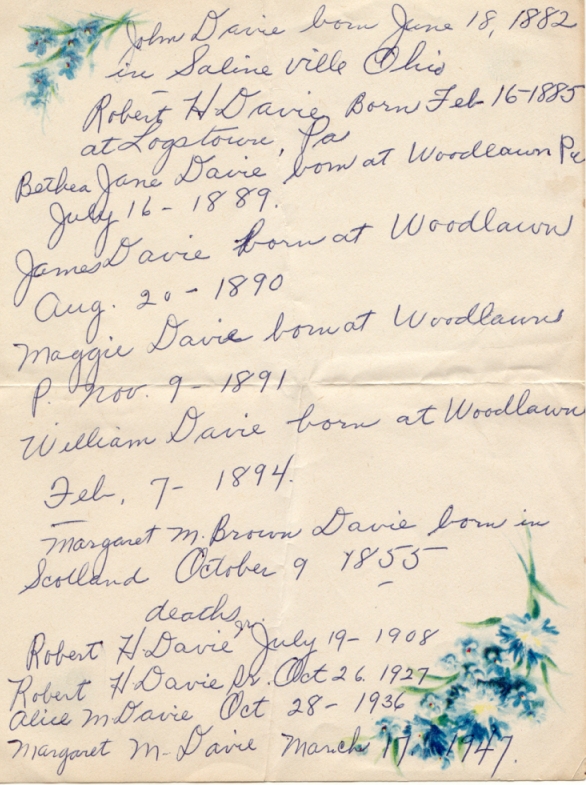 John Davie born June 18, 1882
in Saline ville Ohio
Robert H Davie, Born Feb 16-1885
at Logstown, Pa
Bethea Jane Davie born at Woodlawn Pa
July 16 - 1889.
James Davie born at Woodlawn
Aug. 20 - 1890
Maggie Davie born at Woodlawn
P. Nov. 9 - 1891
William Davie born at Woodlawn
Feb, 7 - 1894.
Margaret M. Brown Davie born in
Scotland October 9 1855
deaths
Robert H Davie Jr. July 19 - 1908
Robert H Davie Sr. Oct 26. 1927
Alice M Davie Oct 28 - 1936
Margaret M - Davie March 17. 1947.